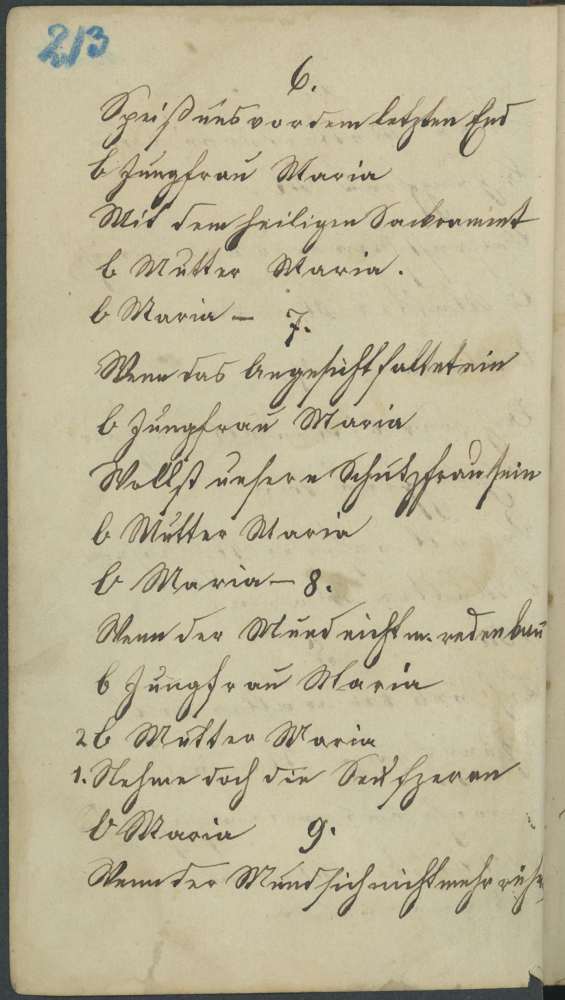 213
6.
Speiß uns vor dem letzten End
b Jungfrau Maria
Mit dem heiligen Sackrament
b Mutter Maria.
b Maria – 7.
Wenn das Angesicht falletein
b Jungfrau Maria
Wollst unsere Schutzfrau sein
b Mutter Maria
b Maria – 8.
Wenn der Mund nicht m. reden kan
b Jungfrau Maria
2 b Mutter Maria
1. Nehme doch die Seufzer an
O Maria 9.
Wenn der Mund sich nicht mehr rühr